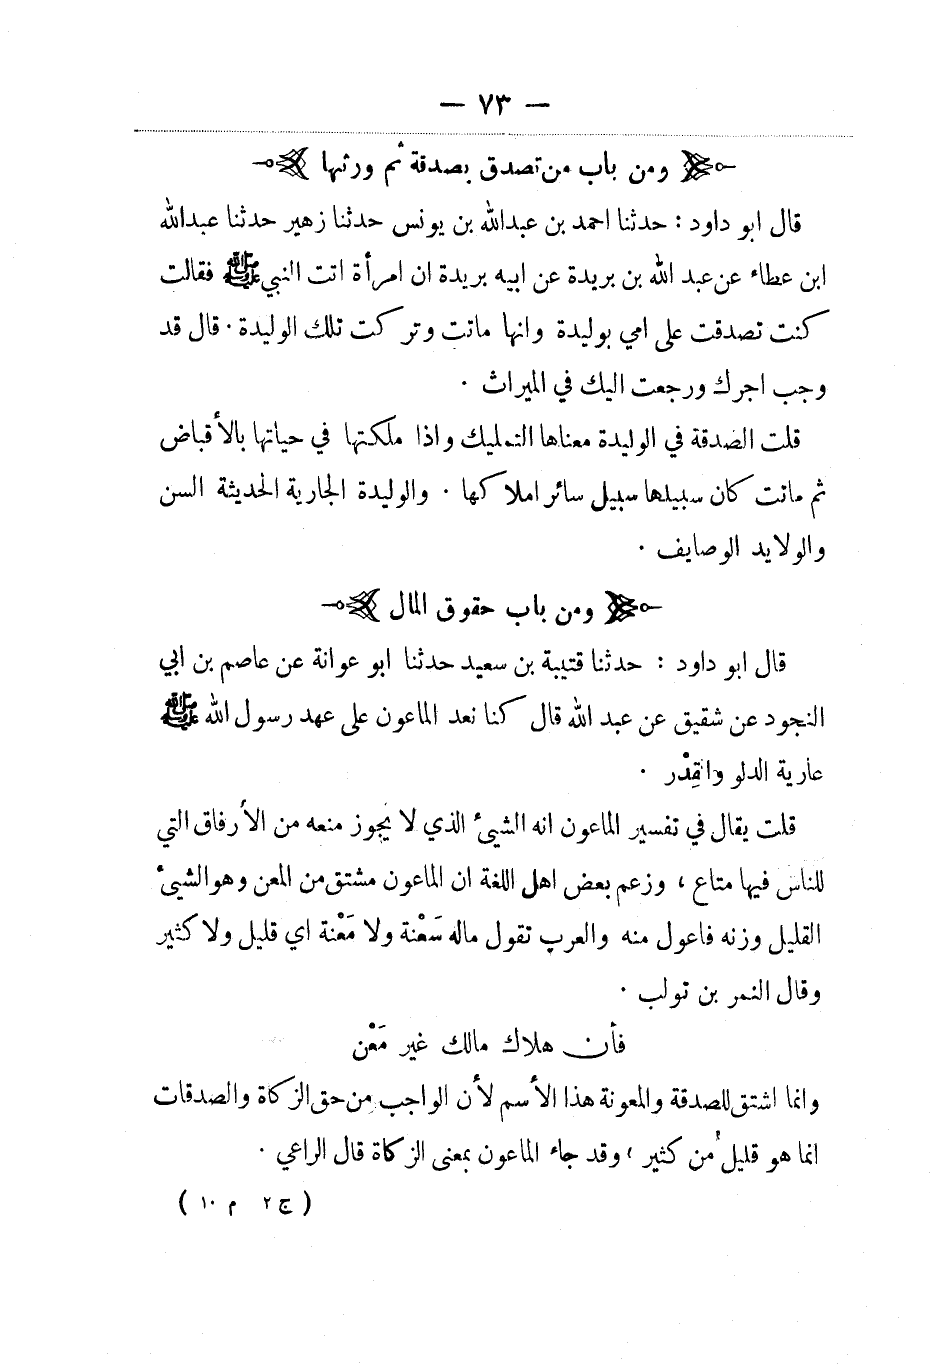 — ٧٣ —
ومن باب من تصدق بصدقة ثم ورثها
قال ابو داود : حدثنا احمد بن عبدالله بن يونس حدثنا زهير حدثنا عبدالله
ابن عطاء عن عبد الله بن بريدة عن ابيه بريدة ان امرأة اتت النبي ﷺ فقالت
كنت تصدقت على امي بوليدة وانها ماتت وتركت تلك الوليدة . قال قد
وجب اجرك ورجعت اليك في الميراث .
قلت الصدقة في الوليدة معناها التمليك واذا ملكتها في حياتها بالأقباض
ثم ماتت كان سبيلها سبيل سائر املاكها . والوليدة الجارية الحديثة السن
والولايد الوصايف .
ومن باب حقوق المال
قال ابو داود : حدثنا قتيبة بن سعيد حدثنا ابو عوانة عن عاصم بن ابي
النجود عن شقيق عن عبد الله قال كنا نعد الماعون على عهد رسول الله ﷺ
عارية الدلو والقِدْر .
قلت يقال في تفسير الماعون انه الشيئ الذي لا يجوز منعه من الأرفاق التي
للناس فيها متاع ، وزعم بعض اهل اللغة ان الماعون مشتق من المعن وهو الشيئ
القليل وزنه فاعول منه والعرب تقول ماله سَعْنة ولا مَعْنة اي قليل ولا كثير
وقال النمر بن تولب .
فأن هلاك مالك غير مَعْن
وانما اشتق للصدقة والمعونة هذا الأسم لأن الواجب من حق الزكاة والصدقات
انما هو قليل من كثير ، وقد جاء الماعون بمعنى الزكاة قال الراعي .
( ج ٢ م ١٠ )